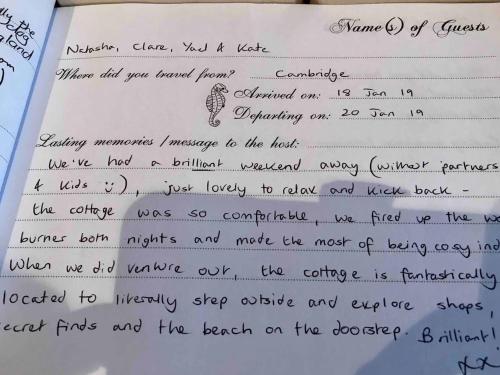 Name(s) of Guests
Natasha, Clare, Yael & Kate
Where did you travel from? Cambridge
Arrived on: 18 Jan 19
Departing on: 20 Jan 19
Lasting memories / message to the host:
We've had a brilliant weekend away (without partners
& kids :)), just lovely to relax and kick back -
the cottage was so comfortable, we fired up the
burner both nights and made the most of being cosy
When we did venture out, the cottage is fantastically
located to literally step outside and explore shops,
secret finds and the beach on the doorstep. Brilliant!
xx